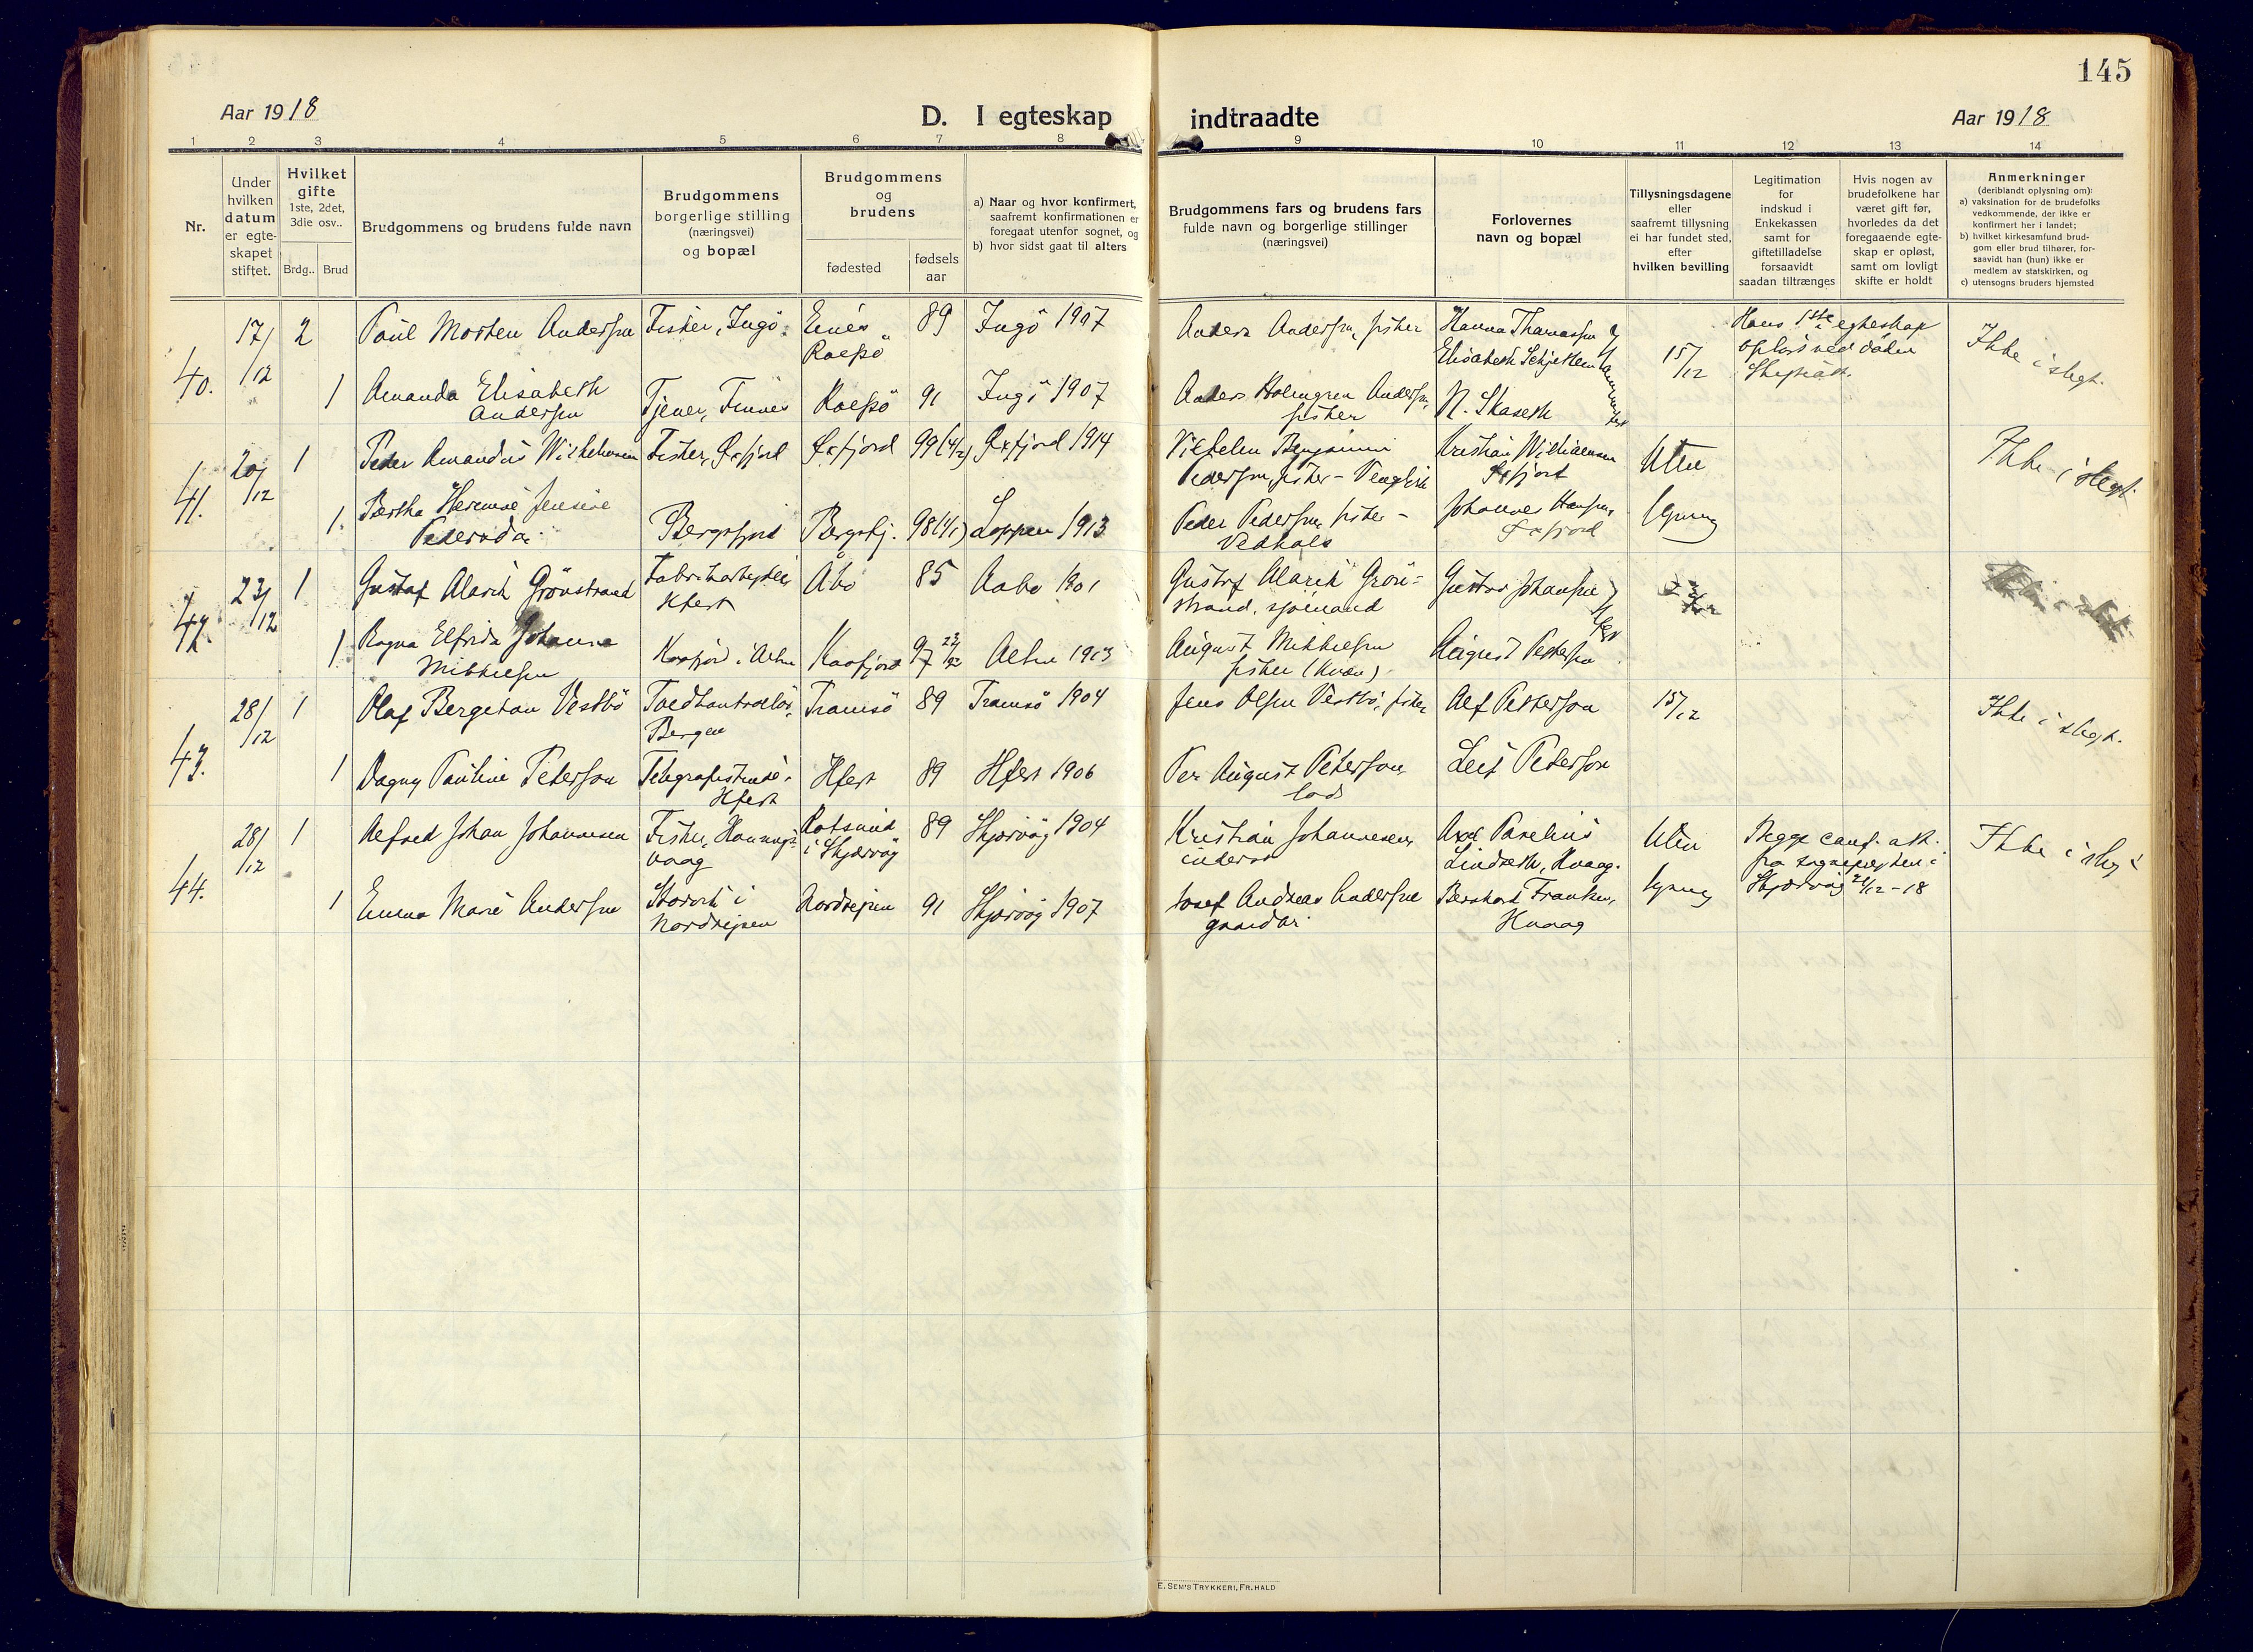 145
Aar 1918
D. I egteskap indtraadte
Aar 1918
1 2 3 4 5 6 7 8 9 10 11 12 13 14
Nr.
Under
hvilken
datum
er egte-
skapet
stiftet.
Hvilket
gifte
1ste, 2det,
3die osv..
Brdg..
Brud
Brudgommens og brudens fulde navn
Brudgommens
borgerlige stilling
(næringsvei)
og bopæl
Brudgommens
og
brudens
fødested
fødsels
aar
a) Naar og hvor konfirmert,
saafremt konfirmationen er
foregaat utenfor sognet, og
b) hvor sidst gaat til alters
Brudgommens fars og brudens fars
fulde navn og borgerlige stillinger
(næringsvei)
Forlovernes
navn og bopæl
Tillysningsdagene
eller
saafremt tillysning
ei har fundet sted,
efter
hvilken bevilling
Legitimation
for
indskud i
Enkekassen
samt for
giftetilladelse
forsaavidt
saadan tiltrænges
Hvis nogen av
brudefolkene har
været gift før,
hvorledes da det
foregaaende egte-
skap er opløst,
samt om lovligt
skifte er holdt
Anmerkninger
(deriblandt oplysning om):
a) vaksination for de brudefolks
vedkommende, der ikke er
konfirmert her i landet;
b) hvilket kirkesamfund brud-
gom eller brud tilhører, for-
saavidt han (hun) ikke er
medlem av statskirken, og
c) utensogns bruders hjemsted
40.
17/12
2
Paul Morten Andersen
Fisker, Ingö
Rolfsö
89
Ingö 1907
Anders Andersen, fisker
Hanna Thomassen
Elisabeth
15/12
Hans 1ste egteskap
opløst ved döden
Ikke i slegt.
1
Amanda Elisabeth
Andersen
Tjener, Finnes
Rolfsö
91
Ingö 1907
Anders Holmgren Andersen,
fisker
N. Skaseth
41.
20/12
1
Peder Amandus Wilhelmsen
Fisker, Öxfjord
Öxfjord
99 (4/2)
Öxfjord 1914
Vilhelm Benjamin
Pedersen fisker -
Kristian
Öxfjord
Uten
Ikke i slegt.
1.
Bertha Hermine Jensine
Pedersdr.
Bergsfjord
Bergsfj.
98
Loppen 1913
Peder Pedersen, fisker -
Johannes Hansen,
Öxfjord
lysning
42.
23/12
1
Gustaf Alarik Grönstrand
Fabrikarbeider,
Hfest
Åbo
85
Aabo 1901
Gustaf Alarik Grön-
strand, sjömand
Gustav Johansen
1
Ragna Elfrida Johanna
Mikkelsen
Kaafjord i Alten
Kaafjord
97
Alten 1913
August Mikkelsen
fisker (kvæn)
August Pettersen
43.
28/12
1
Olaf Bergeton Vestbö
Toldkontrollör,
Bergen
Tromsö
89
Tromsö 1904
Jens Olsen Vestbö, fisker
Alf Petterson
15/12
Ikke i slegt.
1
Dagny Pauline Peterson
Telegrafistinde,
Hfest
Hfest
89
Hfest 1906
Per August Peterson,
lods
Leif Peterson
44.
28/12
1
Alfred Johan Johannesen
Fisker, Honnings-
vaag
Rotsund
i Skjærvöy
89
Skjærvöy 1904
Kristian Johannesen,
inderst
Axel Paselius
Lindseth, Hvaag.
Uten
Begge conf. att.
fra sognepresten i
Skjærvöy 21/12-18
Ikke i slegt
1
Emma Marie Andersen
Storvik i
Nordreisen
Nordreisen
91
Skjærvöy 1907
Josef Andreas Andersen
gaardbr.
Bernhard Franksen,
Hvaag
lysning
E. SEM'S TRYKKERI, FR.HALD